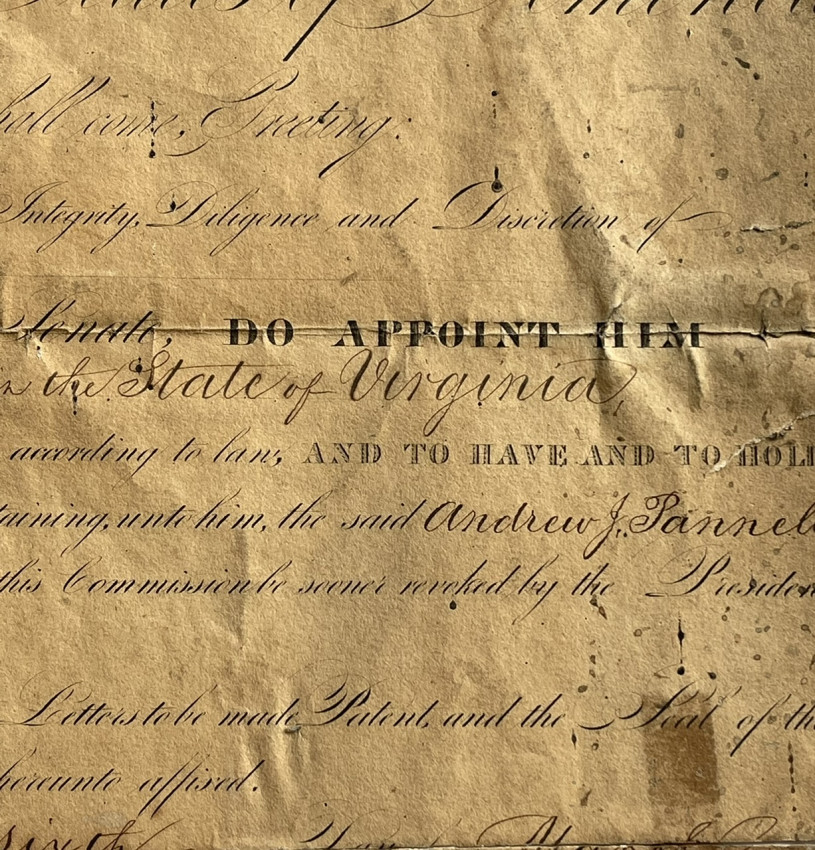 shall come, Greeting:
Integrity, Diligence and Discretion of
Senate, DO APPOINT HIM
in the State of Virginia,
according to law; AND TO HAVE AND TO HOL
taining, unto him, the said Andrew J. Pannel
this Commission be sooner revoked by the Presiden
Letters to be made Patent, and the Seal of th
hereunto affixed.
sixth Day